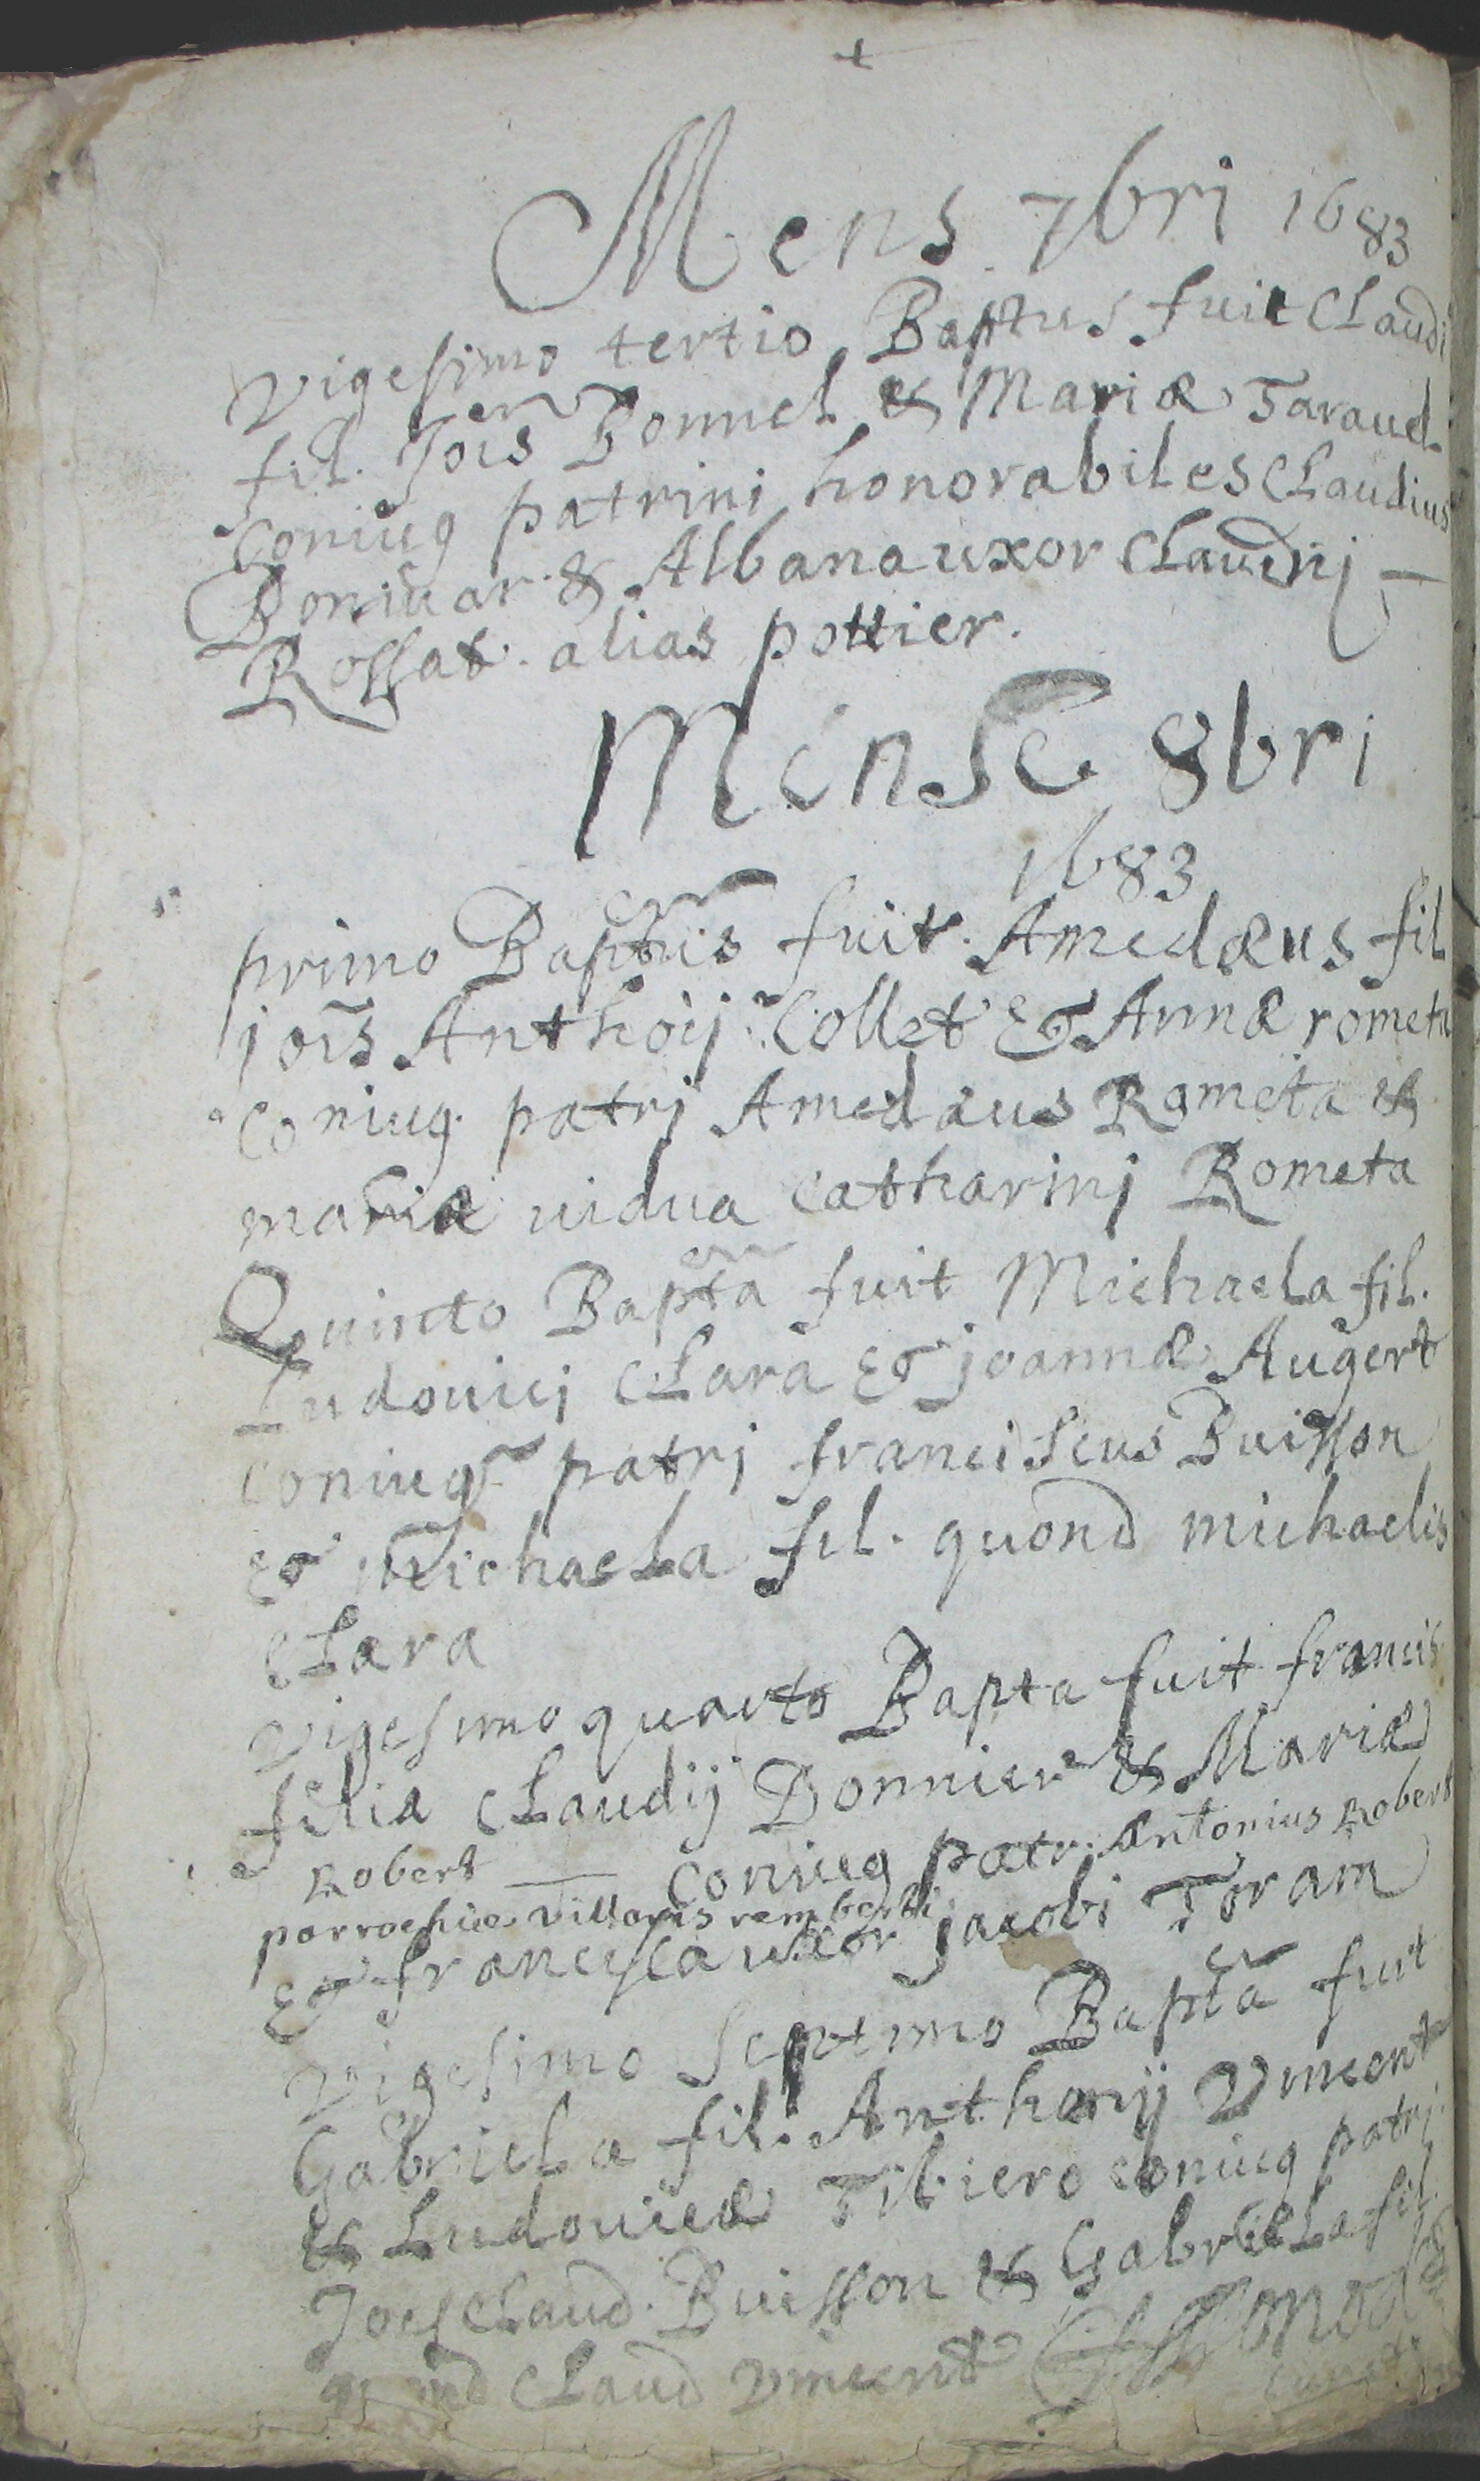 Mens 7bri 1683
Vigesimo tertio Baptus fuit Claudi
fil. Jois Bonnel & Mariæ Taravel
coniug patrini honorabiles Claudius
Bonivar & Albana uxor Claudii
Rossat alias pottier.
Mense 8bri
1683
primo Baptus fuit Amedæus fil
jois Anthoij Collet & Annæ rometa
coniug. patrj Amedæus Rometa &
maria vidua catharinj Rometa
Quinto Bapta fuit Michaela fil.
Ludovicj Clara & joannæ Augert
coniug patrj franciscus Buisson
& Michaela fil. quond michaelis
Clara
Vigesimo quarto Bapta fuit francis
filia Claudij Bonnier & Mariæ
Robert coniug patr. Antonius Robert
parrochiæ Villaris remberti
& francisca uxor jacobi Toram
Vigesimo septimo Bapta fuit
Gabriela fil. Anthonij Vincent
& Ludovicæ Tibiero coniug patrj.
Joes Claud. Buisson & Gabriela fil.
quond Claud Vincent